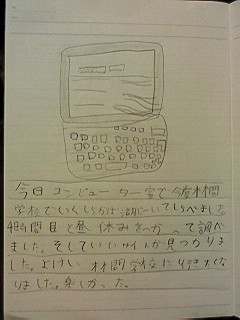 今日コンピューター室で今度林間
学校でいくしらかば湖についてしらべました。
4時間目と昼休みをつかって調べ
ました。そしていいサイトが見つかりま
した。よけい林間学校に行きたくな
りました。楽しかった。